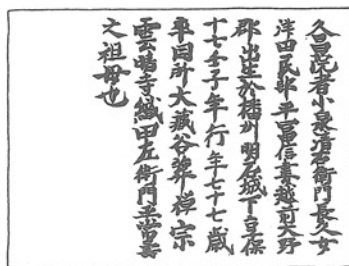 久昌院者小泉清右衛門長久女
津田民部平冨信妻越前大野
郡出生於播州明石城下享保
十七壬子年行年七十七歳
卒同所大蔵谷葬禅宗
雲晴寺織田左衛門丞常妻
之祖母也